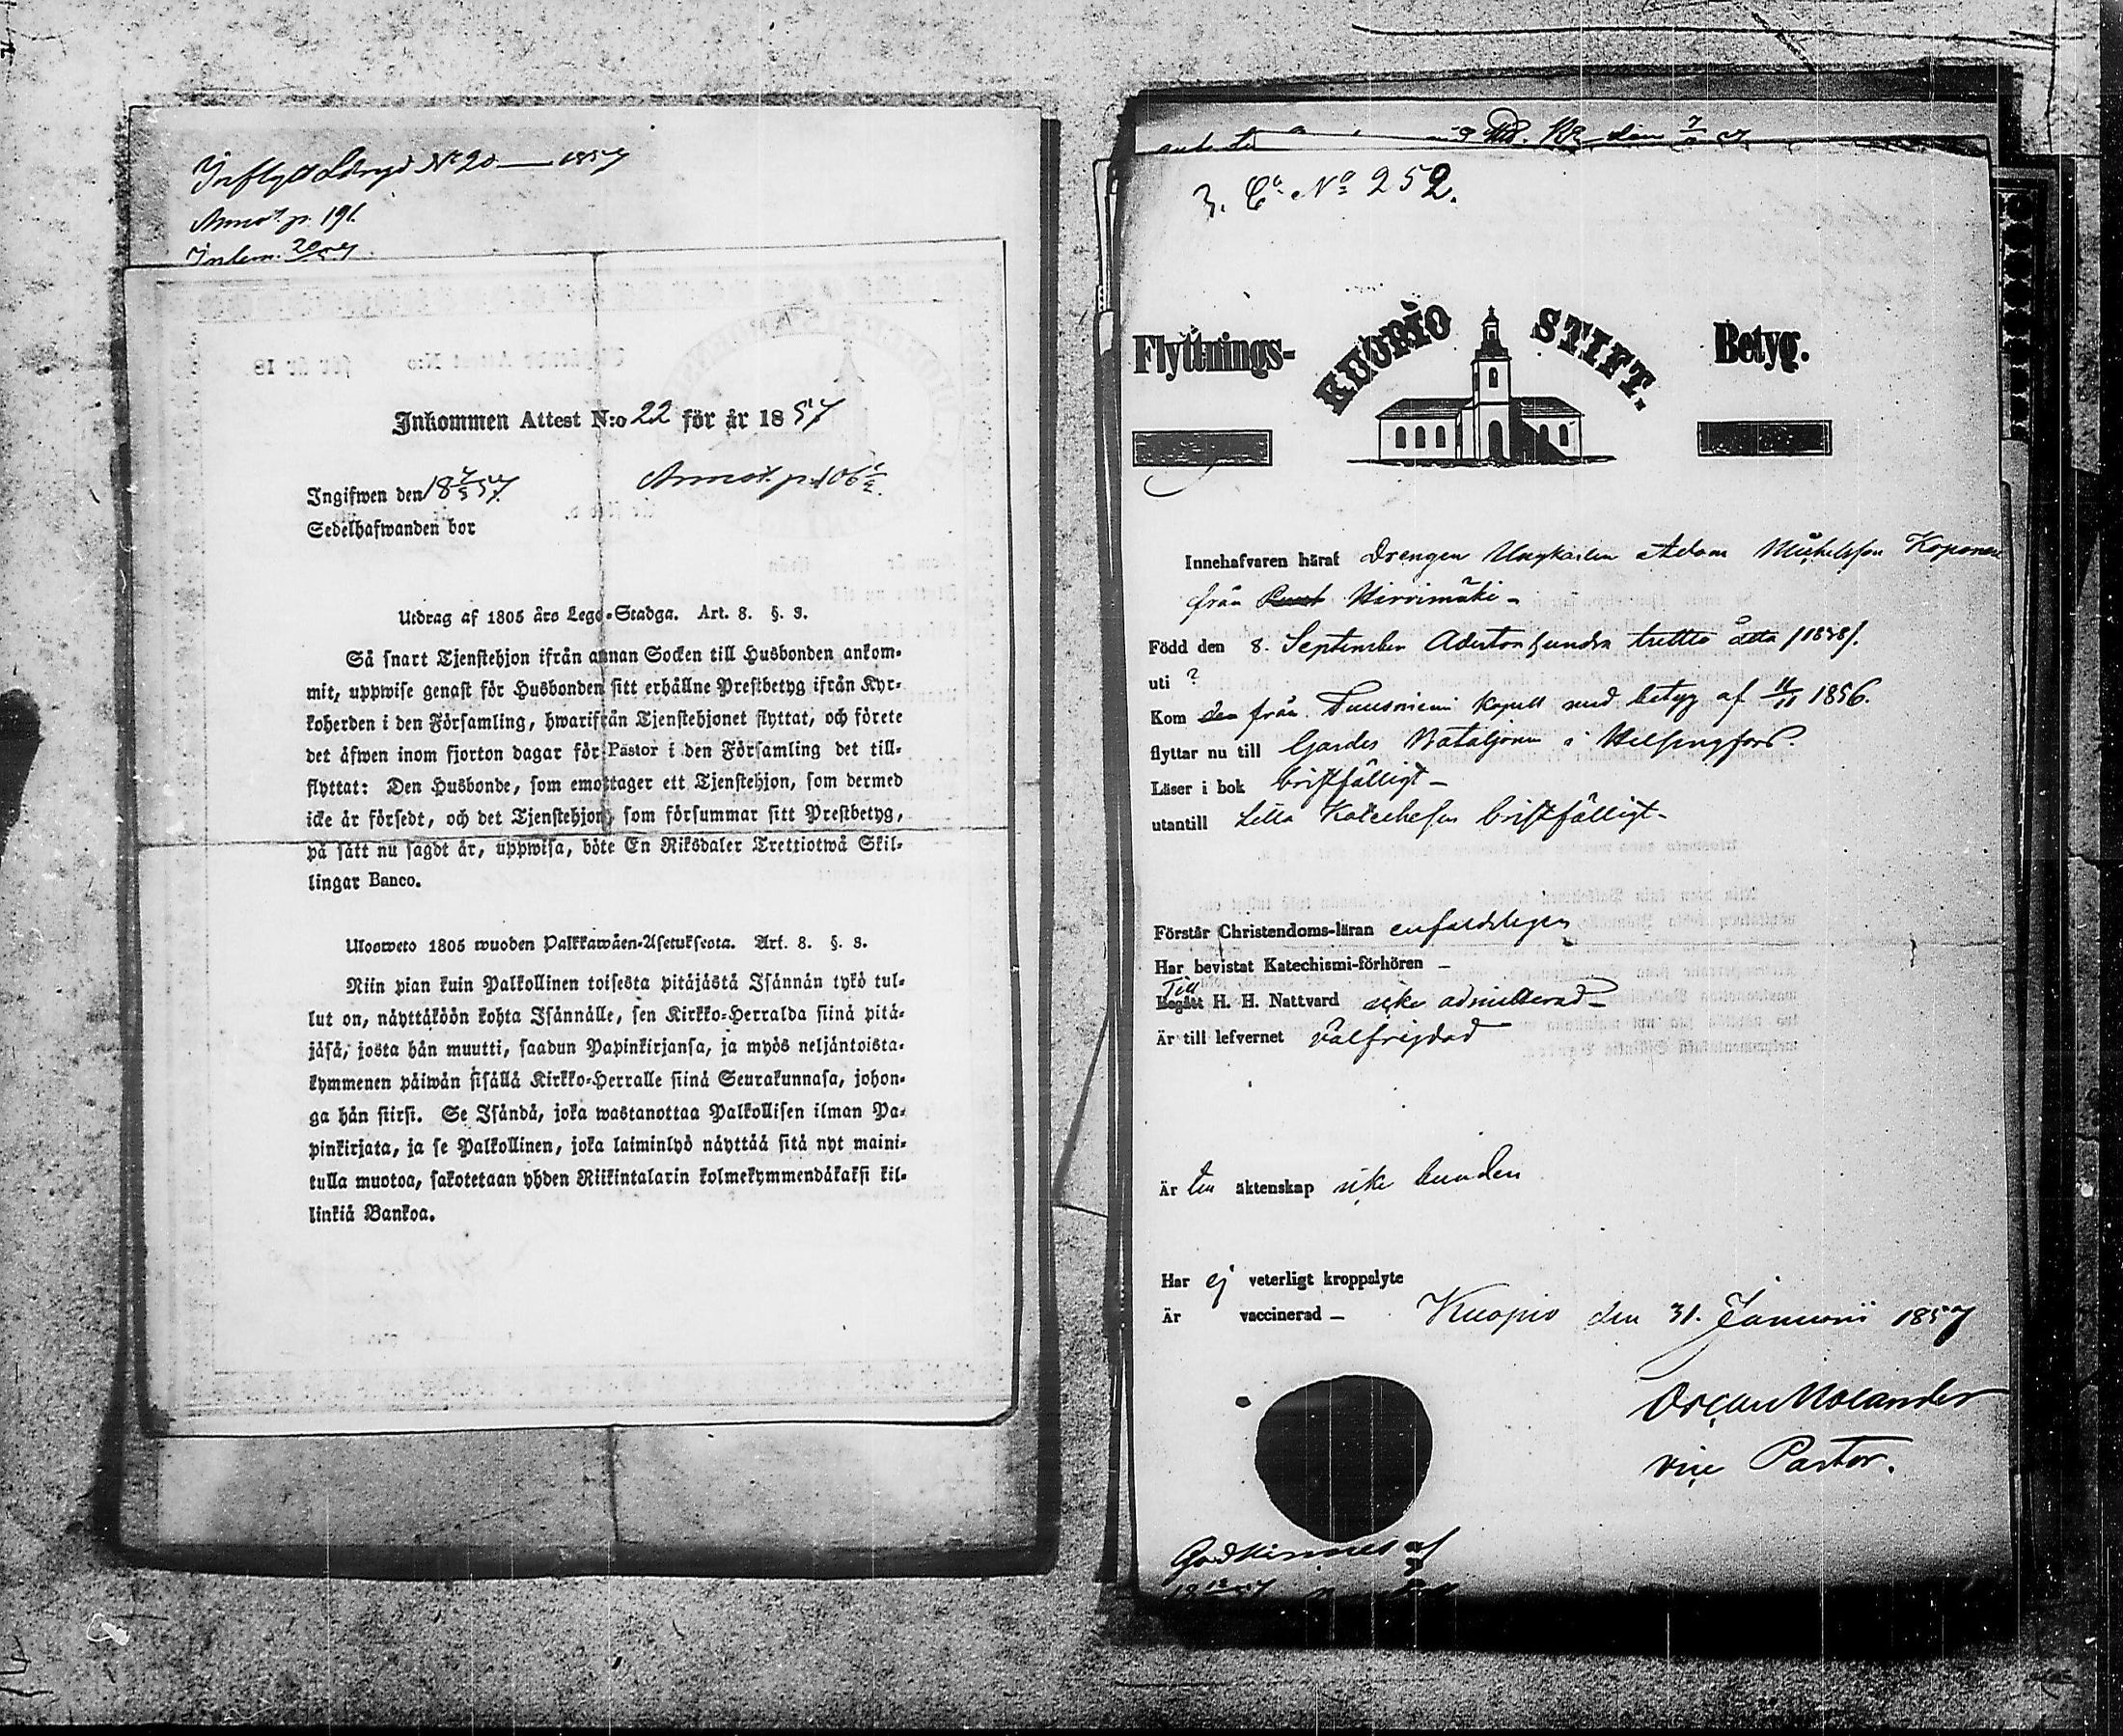 Inflyttn. Betyg N:o 20 — 1857
Annot. p. 191.
Inkommen Attest N:o 22 för år 1857
Ingifwen den 18 57
Annot. p. 106
Sedelhafwanden bor
Utdrag af 1805 års Lego-Stadga. Art. 8. §. 3.
Så snart Tjenstehjon ifrån annan Socken till Husbonden ankom-
mit, uppwise genast för Husbonden sitt erhållne Prestbetyg ifrån Kyr-
koherden i den Församling, hwarifrån Tjenstehjonet flyttat, och förete
det äfwen inom fjorton dagar för Pastor i den Församling det till-
flyttat: Den Husbonde, som emottager ett Tjenstehjon, som dermed
icke är försedt, och det Tjenstehjon, som försummar sitt Prestbetyg,
på sätt nu sagdt är, uppwisa, böte En Riksdaler Trettiotwå Skil-
lingar Banco.
Ulosweto 1805 wuoden Palkkawäen-Asetuksesta. Art. 8. §. 3.
Niin pian kuin Palkollinen toisesta pitäjästä Isännän tykö tul-
lut on, näyttäköön kohta Isännälle, sen Kirkko-Herralda siinä pitä-
jäsä, josta hän muutti, saadun Papinkirjansa, ja myös neljäntoista-
kymmenen päiwän sisällä Kirkko-Herralle siinä Seurakunnasa, johon-
ga hän siirsi. Se Isändä, joka wastanottaa Palkollisen ilman Pa-
pinkirjata, ja se Palkollinen, joka laiminlyö näyttää sitä nyt maini-
tulla muotoa, sakotetaan yhden Riikintalarin kolmekymmendäkaksi kil-
linkiä Bankoa.
3. C:a N:o 252.
Flyttnings- KUOPIO STIFT. Betyg.
Innehafvaren häraf Drengen Ungkarlen Adam Michelsson Koponen
från Hirvimäki -
Född den 8. September Adertonhundra trettio åtta /1838/.
uti ?
Kom den från Tuusniemi Kapell med betyg af 11/11 1856.
flyttar nu till Gardes Bataljonen i Helsingfors.
Läser i bok bristfälligt -
utantill Lilla Katechesen bristfälligt -
Förstår Christendoms-läran enfaldeligen
Har bevistat Katechismi-förhören -
Till
Begått H. H. Nattvard icke admitterad -
Är till lefvernet välfrejdad
Är till äktenskap icke bunden
Har ej veterligt kroppslyte
Är vaccinerad - Kuopio den 31. Januarii 1857
Oscar Molander
vice Pastor.
Godkännes af